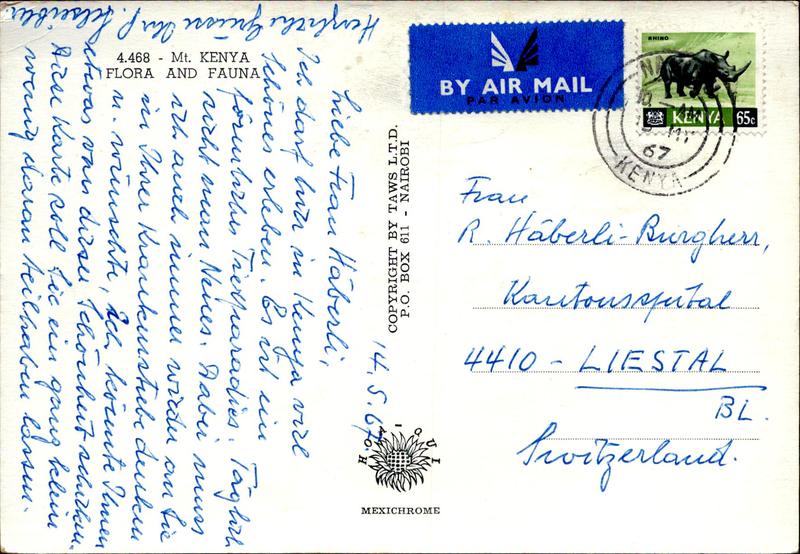 4.468 - Mt. KENYA
FLORA AND FAUNA
14.5.67.
Liebe Frau Häberli,
Ich darf hier in Kenya viel
Schönes erleben. Es ist ein
förmliches Tierparadies. Täglich
sieht man Neues. Dabei muss
ich auch immer wieder an Sie
in Ihrer Krankenstube denken
u. wünschte, ich könnte Ihnen
etwas von dieser Schönheit schicken.
Diese Karte soll Sie ein ganz klein
wenig daran teilhaben lassen.
Herzliche Grüsse Ihr P.
COPYRIGHT BY TAWS L.T.D.
P.O. BOX 611 - NAIROBI
MEXICHROME
BY AIR MAIL
PAR AVION
RHINO
KENYA 65c
67
KENYA
Frau
R. Häberli-Burgherr,
Kantonsspital
4410 - LIESTAL
BL.
Switzerland.